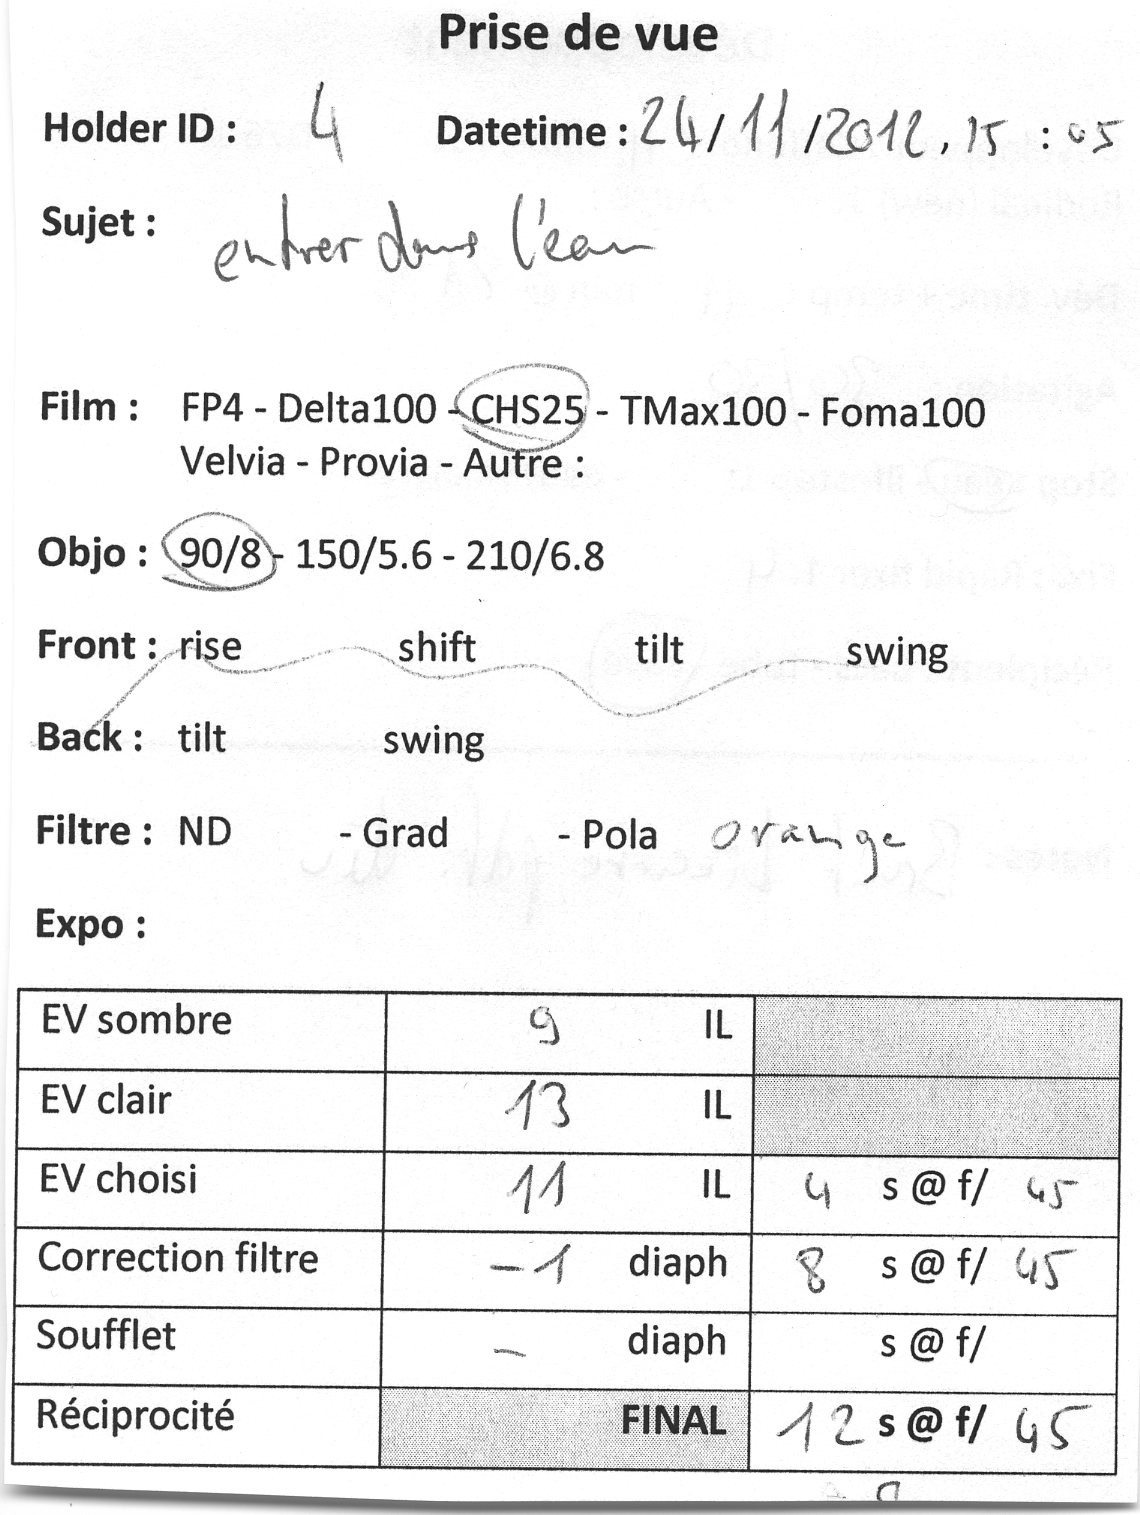 Prise de vue
Holder ID : 4 Datetime : 24/11/2012, 15 : 05
Sujet : entrer dans l'eau
Film : FP4 - Delta100 - CHS25 - TMax100 - Foma100
Velvia - Provia - Autre :
Objo : 90/8 - 150/5.6 - 210/6.8
Front : rise shift tilt swing
Back : tilt swing
Filtre : ND - Grad - Pola orange
Expo :
EV sombre 9 IL
EV clair 13 IL
EV choisi 11 IL 4 s @ f/ 45
Correction filtre -1 diaph 8 s @ f/ 45
Soufflet - diaph s @ f/
Réciprocité FINAL 12 s @ f/ 45